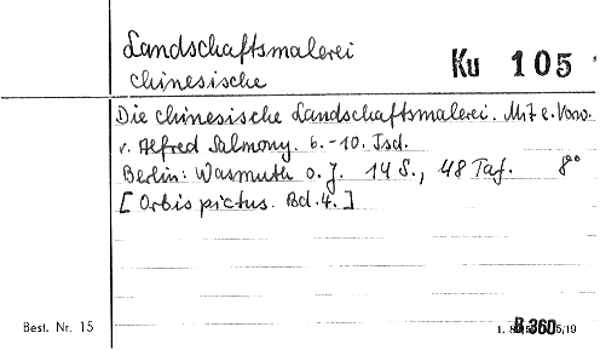 Landschaftsmalerei
chinesische
Ku 105
Die chinesische Landschaftsmalerei. Mit e. Vorw.
v. Alfred Salmony. 6.-10. Tsd.
Berlin: Wasmuth o. J. 14 S., 48 Taf. 8°
[Orbis pictus. Bd. 4.]
Best. Nr. 15
B 360